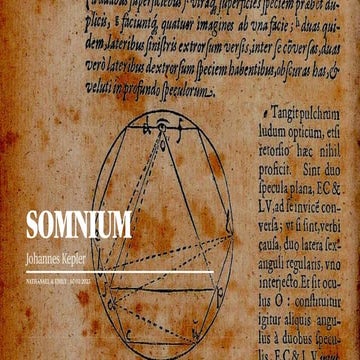 duplicis; & faciunt q, quatuor imagines ab una facie; hduas qui-
dem, lateribus sinistris extrorsum versis, inter se cõversas, duas
verò lateribus dextrorsum speciem habentibus, obscuras has, &
veluti in profundo speculorum.
Tangit pulchrum
ludum opticum, etsi
retorsio hæc nibil
proficit. Sint duo
specula plana, EC &
LV, ad se invicē con-
versa; vt si sint, verbi
causa, duo latera sex-
anguli regularis, vno
interjecto. Et sit ocu-
lus O: constituitur
igitur aliquis angu-
lus à duobus specu-
lis EC & LV
SOMNIUM
Johannes Kepler